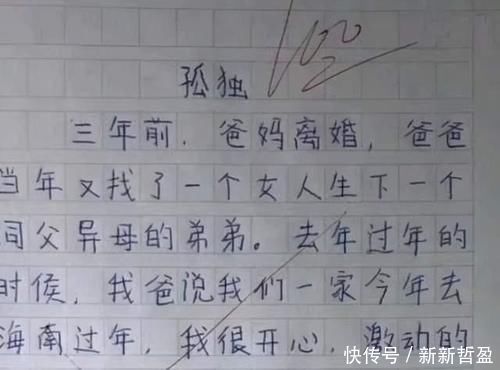 100
孤独
三年前，爸妈离婚，爸爸
当年又找了一个女人生下一个
同父异母的弟弟。去年过年的
时候，我爸说我们一家今年去
海南过年，我很开心，激动的
快传号/新新哲盈